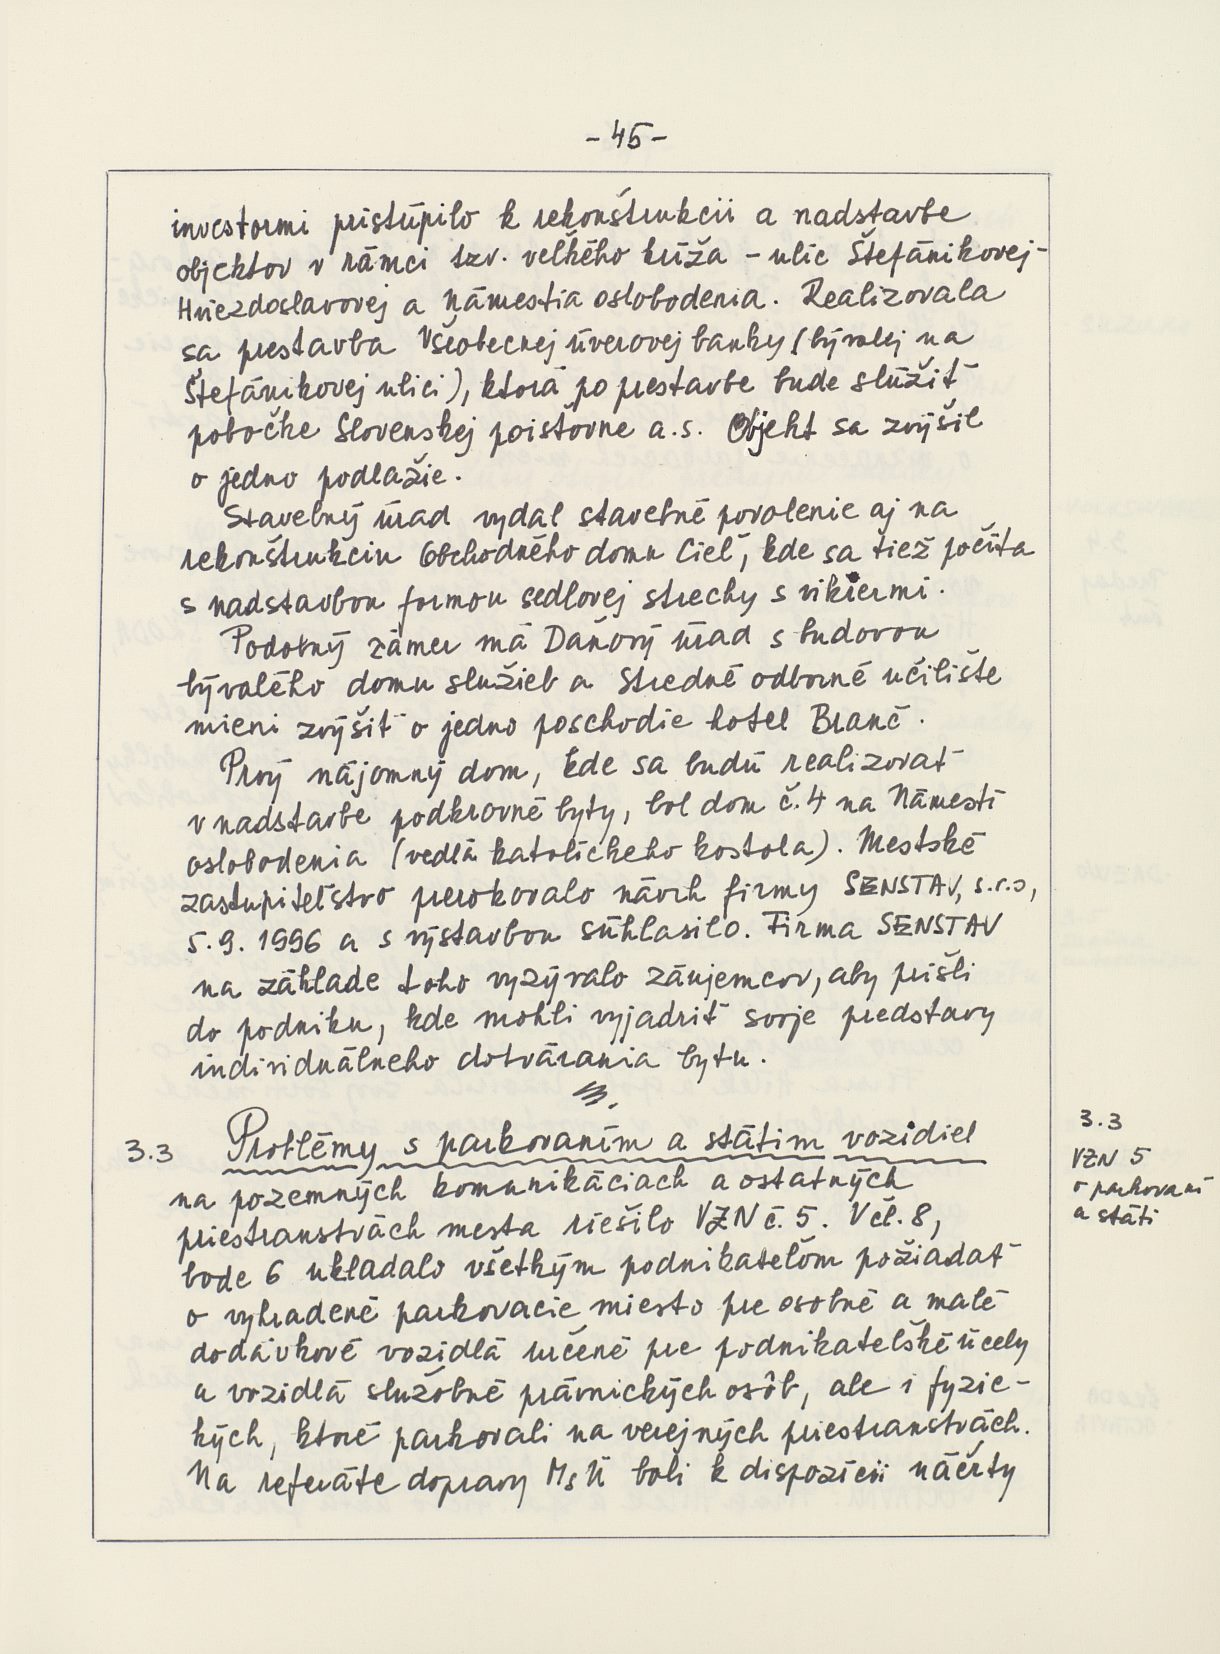 - 45 -
investormi pristúpilo k rekonštrukcii a nadstavbe
objektov v rámci tzv. veľkého kríža - ulíc Štefánikovej-
Hviezdoslavovej a Námestia oslobodenia. Realizovala
sa prestavba Všeobecnej úverovej banky (bývalej na
Štefánikovej ulici), ktorá po prestavbe bude slúžiť
pobočke Slovenskej poisťovne a.s. Objekt sa zvýšil
o jedno podlažie.
Stavebný úrad vydal stavebné povolenie aj na
rekonštrukciu Obchodného domu Cieľ, kde sa tiež počíta
s nadstavbou formou sedlovej strechy s vikiermi.
Podobný zámer má Daňový úrad s budovou
bývalého domu služieb a Stredné odborné učilište
mieni zvýšiť o jedno poschodie hotel Branč.
Prvý nájomný dom, kde sa budú realizovať
v nadstavbe podkrovné byty, bol dom č. 4 na Námestí
oslobodenia (vedľa katolíckeho kostola). Mestské
zastupiteľstvo prerokovalo návrh firmy SENSTAV, s.r.o,
5.9. 1996 a s výstavbou súhlasilo. Firma SENSTAV
na základe toho vyzývalo záujemcov, aby prišli
do podniku, kde mohli vyjadriť svoje predstavy
individuálneho dotvárania bytu.
3.3 Problémy s parkovaním a státim vozidiel
na pozemných komunikáciach a ostatných
priestranstvách mesta riešilo VZN č. 5. V čl. 8,
bode 6 ukladalo všetkým podnikateľom požiadať
o vyhradené parkovacie miesto pre osobné a malé
dodávkové vozidlá určené pre podnikateľské účely
a vozidlá služobné právnických osôb, ale i fyzic-
kých, ktoré parkovali na verejných priestranstvách.
Na referáte dopravy MsÚ boli k dispozícii náčrty
3.3
VZN 5
o parkovaní
a státi